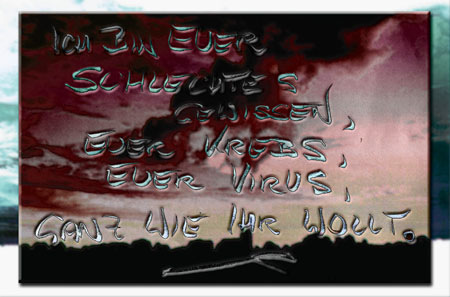 ICH BIN EUER
SCHLECHTES
GEWISSEN,
EUER KREBS,
EUER VIRUS,
GANZ WIE IHR WOLLT.